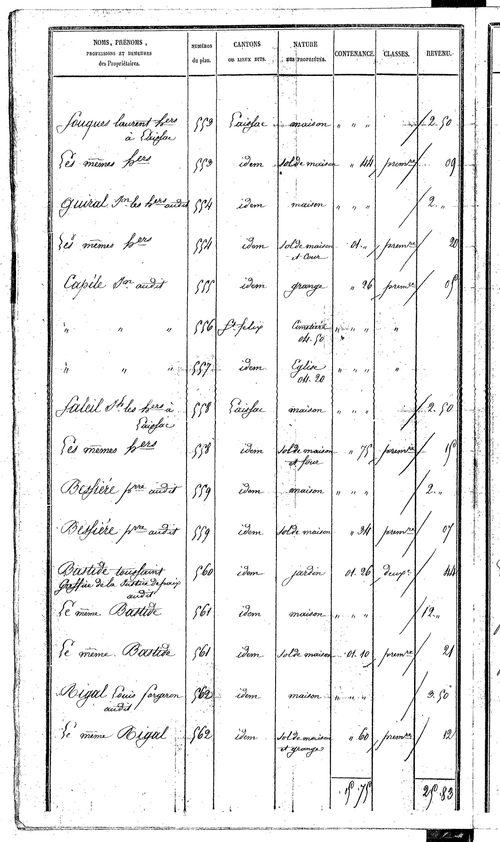 NOMS, PRÉNOMS, PROFESSIONS ET DEMEURES des Propriétaires. NUMÉROS du plan. CANTONS OU LIEUX DITS. NATURE DES PROPRIÉTÉS. CONTENANCE. CLASSES. REVENU.
Fouques laurent hers 553 Laissac maison " " " 2. 50
à Laissac
Les mêmes hers 553 idem sol de maison " 44 premre 09
Guiral Jn les hers audit 554 idem maison " " " 2. "
Les mêmes hers 554 idem sol de maison 01. " premre 20
et Cour
Capéle Jn audit 555 idem grange " 26 premre 05
" " " 556 St felix Cimetière " " " "
04. 50
" " " 557 idem Eglise " " " "
04. 20
Saleil les hers à 558 Laissac maison " " " 2. 50
Laissac
Les mêmes hers 558 idem sol de maison " 75 premre 15
et four
Bessiére pre audit 559 idem maison " " " 2. "
Bessiére pre audit 559 idem sol de maison " 34 premre 07
Bastide toussaint 560 idem jardin 01. 26 deuxe 44
Greffier de la Justice de paix
audit
Le même Bastide 561 idem maison " " " 12. "
Le même Bastide 561 idem sol de maison 01. 10 premre 21
Rigal Louis forgeron 562 idem maison " " " 3. 50
audit
Le même Rigal 562 idem sol de maison " 60 premre 12
et grange
15. 75 25. 83